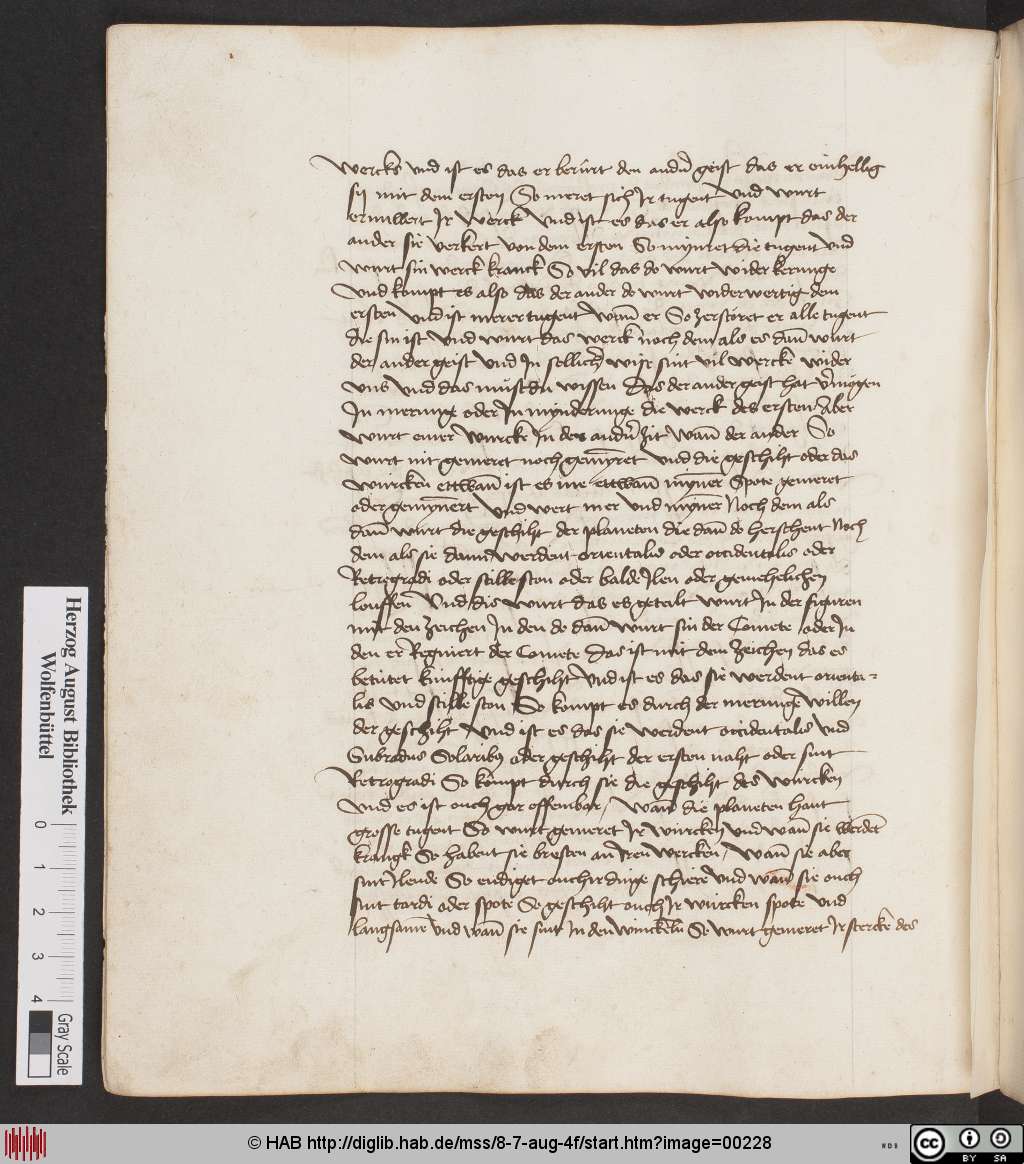 wercks vnd ist es das er berürt den andern geist das er einhellig
sij mit dem ersten So meret sich Ir tugent vnd wurt
ernuwert Ir werck vnd ist es das er also kompt das der
ander sie verkert von dem ersten So mynret die tugent vnd
wurt sin werck kranck So vil das do wurt widerkerunge
vnd kompt es also das der ander do wurt widerwertig dem
ersten vnd ist merer tugent wan̄ er So zerstöret er alle tugent
die sin ist vnd wurt das werck noch dem als es dan̄ wurt
der ander geist vnd In sellicher wise sint vil wercke wider
vns vnd das mustdu wissen Das der ander geist hat vermögen
In merunge oder In mynderunge die werck des ersten Aber
wurt einer wurcken In der andern zit wan̄ der ander So
wurt nit gemeret noch gemynret vnd die geschiht oder das
wurcken ettwan̄ ist es me ettwan̄ myner Spote gemeret
oder gemynert vnd wert mer vnd myner Noch dem als
dan̄ wurt die geschiht der planeten die dan̄ do herschent Noch
dem als sie dann werdent orientalis oder occidentalis oder
Retrogradi oder stille ston oder balde Ilen oder gemehelichen
louffen vnd dis wurt das es geteilt wurt In der figuren
mit den zeichen In den do dan̄ wurt sin der Comete oder In
den er Regniert der Comete Das ist mit dem zeichen das es
betutet kunfftige geschiht vnd ist es das sie werdent orienta-
lis vnd stille ston So kompt es durch der merunge willen
der geschiht vnd ist es das sie werdent occidentalis vnd
Subradus Solaribus oder geschiht der ersten naht oder sint
Retrogradi So kompt durch sie die geschiht des wurcken
vnd es ist ouch gar offenbar / wan̄ die planeten hant
grosse tugent So wurt gemeret Ir wurcken vnd wan̄ sie werdent
kranck So habent sie bresten an Iren wercken / wan̄ sie aber
sint Ilende So endiget ouch ir dinge schiere vnd wan̄ sie ouch
sint tardi oder spote So geschiht ouch Ir wurcken spote vnd
langsame vnd wan̄ sie sint In den winckeln So wurt gemeret Ir stercke des
Herzog August Bibliothek
Wolfenbüttel
0 1 2 3 4
Gray Scale
© HAB http://diglib.hab.de/mss/8-7-aug-4f/start.htm?image=00228
WDB
cc BY SA